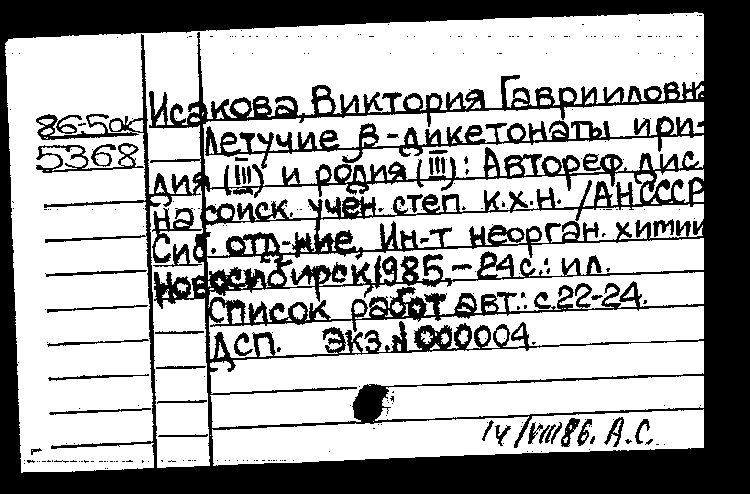 Исакова, Виктория Гаврииловна
86-5ок
Летучие β-дикетонаты ири-
5368
дия (III) и родия (III): Автореф. дис.
на соиск. учён. степ. к.х.н. /АН СССР
Сиб. отд-ние, Ин-т неорган. химии
Новосибирск, 1985, – 24 с.: ил.
Список работ авт.: с.22-24.
ДСП. Экз. № 000004.
14/VIII 86. А.С.